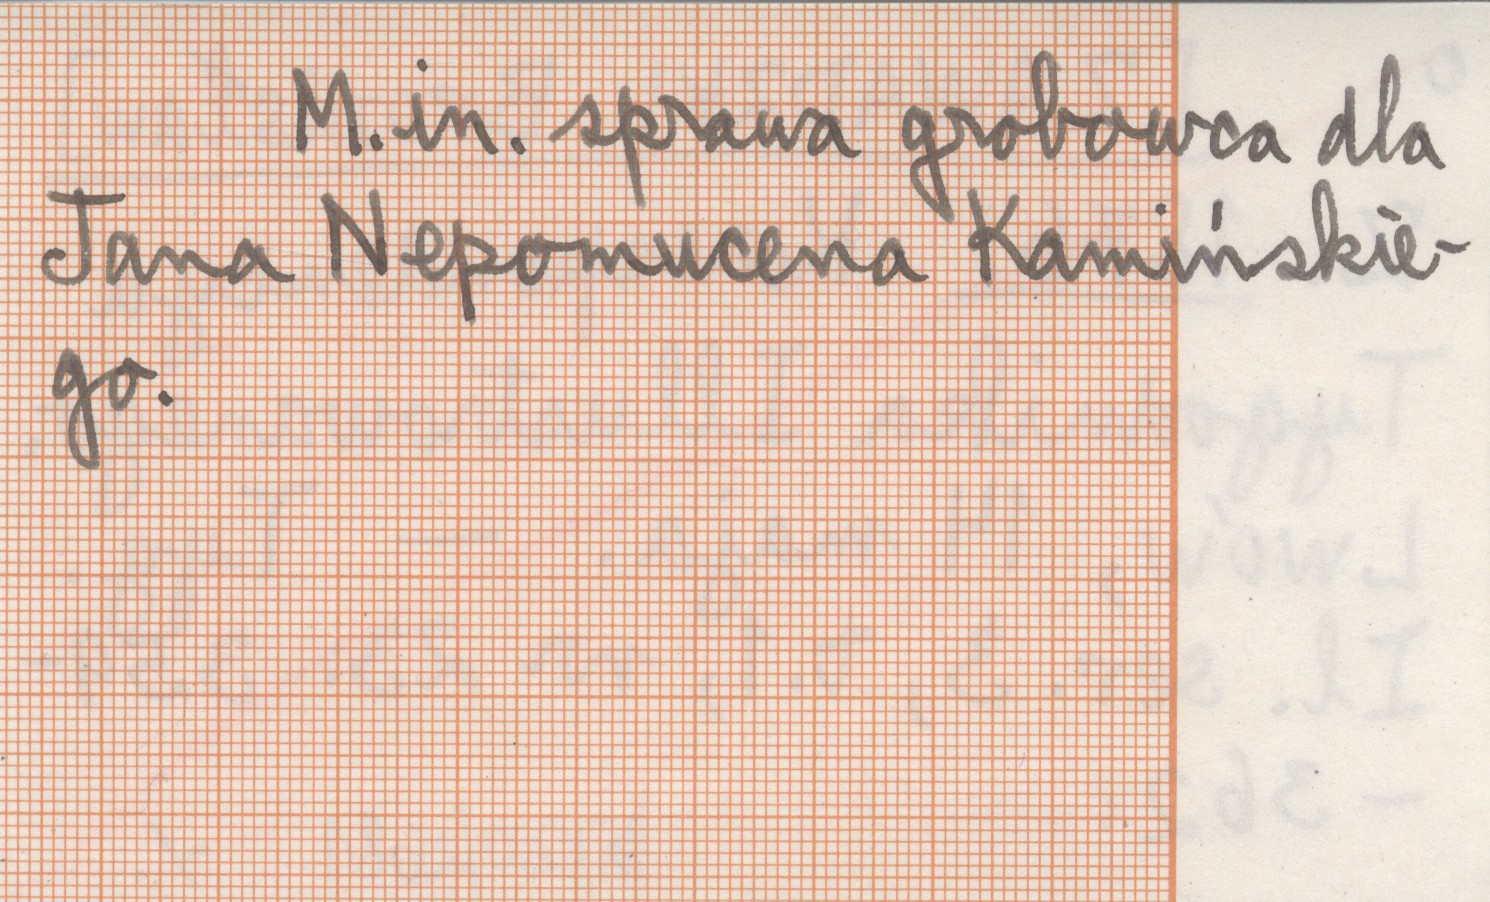 M. in. sprawa grobowca dla
Jana Nepomucena Kamińskie-
go.